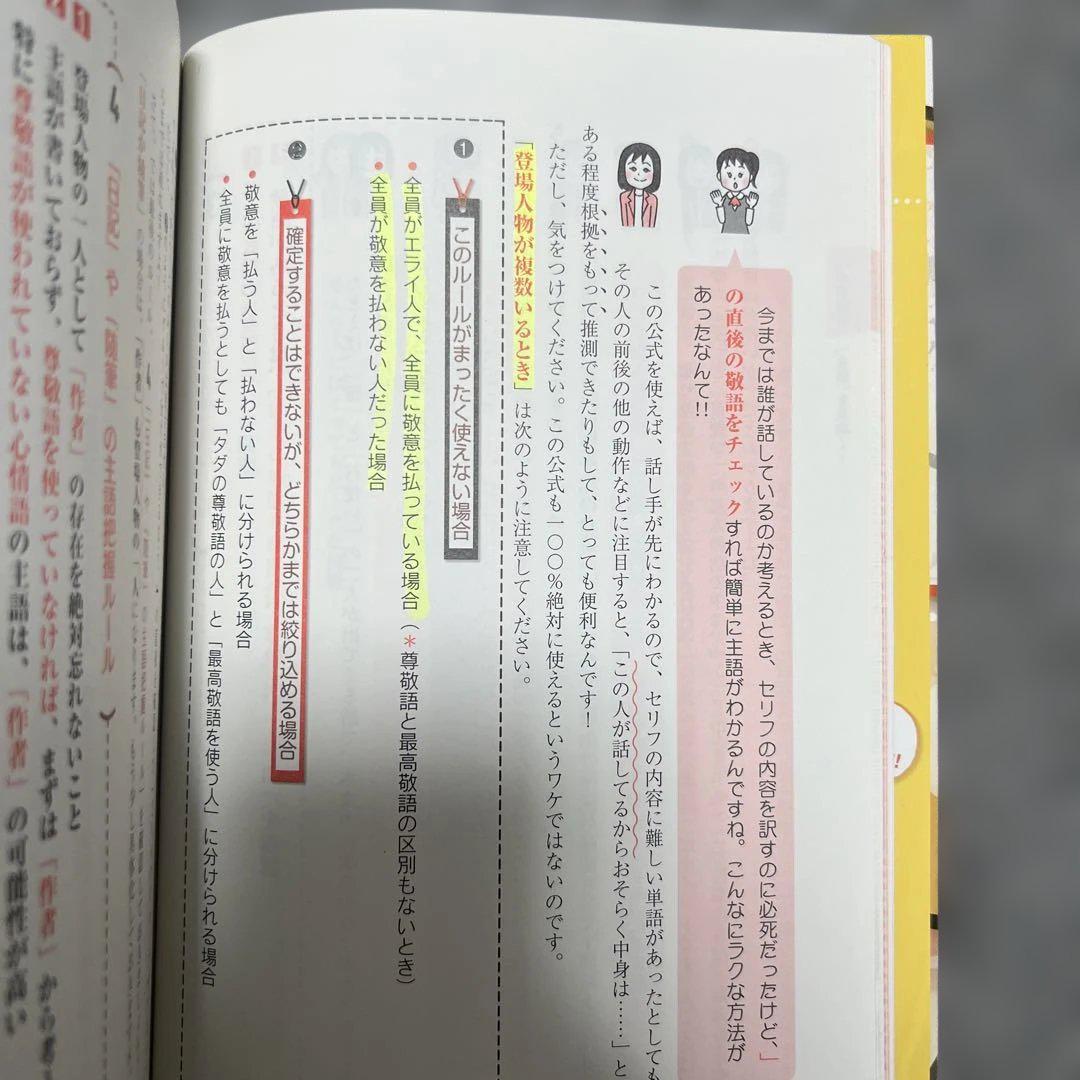 今までは誰が話しているのか考えるとき、セリフの内容を訳すのに必死だったけど、」
の直後の敬語をチェックすれば簡単に主語がわかるんですね。こんなにラクな方法が
あったなんて!!
この公式を使えば、話し手が先にわかるので、セリフの内容に難しい単語があったとしても
その人の前後の他の動作などに注目すると、「この人が話してるからおそらく中身は……」と
ある程度根拠をもって推測できたりもして、とっても便利なんです！
ただし、気をつけてください。この公式も一〇〇％絶対に使えるというワケではないのです。
「登場人物が複数いるとき」は次のように注意してください。
❶
このルールがまったく使えない場合
・全員がエライ人で、全員に敬意を払っている場合（＊尊敬語と最高敬語の区別もないとき）
・全員が敬意を払わない人だった場合
❷
確定することはできないが、どちらかまでは絞り込める場合
・敬意を「払う人」と「払わない人」に分けられる場合
・全員に敬意を払うとしても「タダの尊敬語の人」と「最高敬語を使う人」に分けられる場合
4 「日記」や「随筆」の主語把握ルール
1 登場人物の一人として「作者」の存在を絶対忘れないこと
主語が書いておらず、尊敬語を使っていなければ、まずは「作者」から考
特に尊敬語が使われていない心情語の主語は、「作者」の可能性が高い